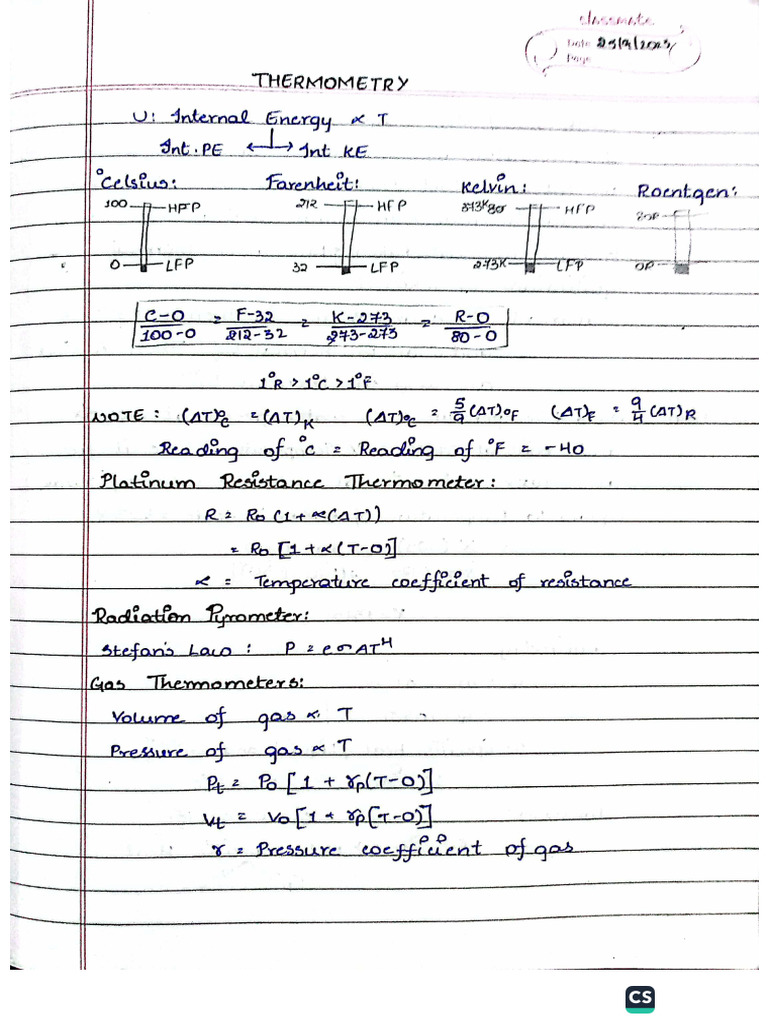 classmate
Date
Page
THERMOMETRY
U: Internal Energy ∝ T
Int. PE ⟷ Int KE
°Celsius: Farenheit: Kelvin: Roentgen:
100 HFP 212 HFP HFP 80R
0 LFP 32 LFP 273K LFP 0R
C-0/100-0 = F-32/212-32 = K-273/373-273 = R-0/80-0
1°R > 1°C > 1°F
NOTE: (ΔT)°C = (ΔT)K (ΔT)°C = 5/9 (ΔT)°F (ΔT)F = 9/4 (ΔT)R
Reading of °C = Reading of °F = -40
Platinum Resistance Thermometer:
R = R0 (1 + ∝(ΔT))
= R0 [1 + ∝(T-0)]
∝ = Temperature coefficient of resistance
Radiation Pyrometer:
Stefan's Law: P = eσAT⁴
Gas Thermometers:
Volume of gas ∝ T
Pressure of gas ∝ T
Pt = P0 [1 + γp(T-0)]
Vt = V0 [1 + γp[T-0)]
γ = Pressure coefficient of gas
CS